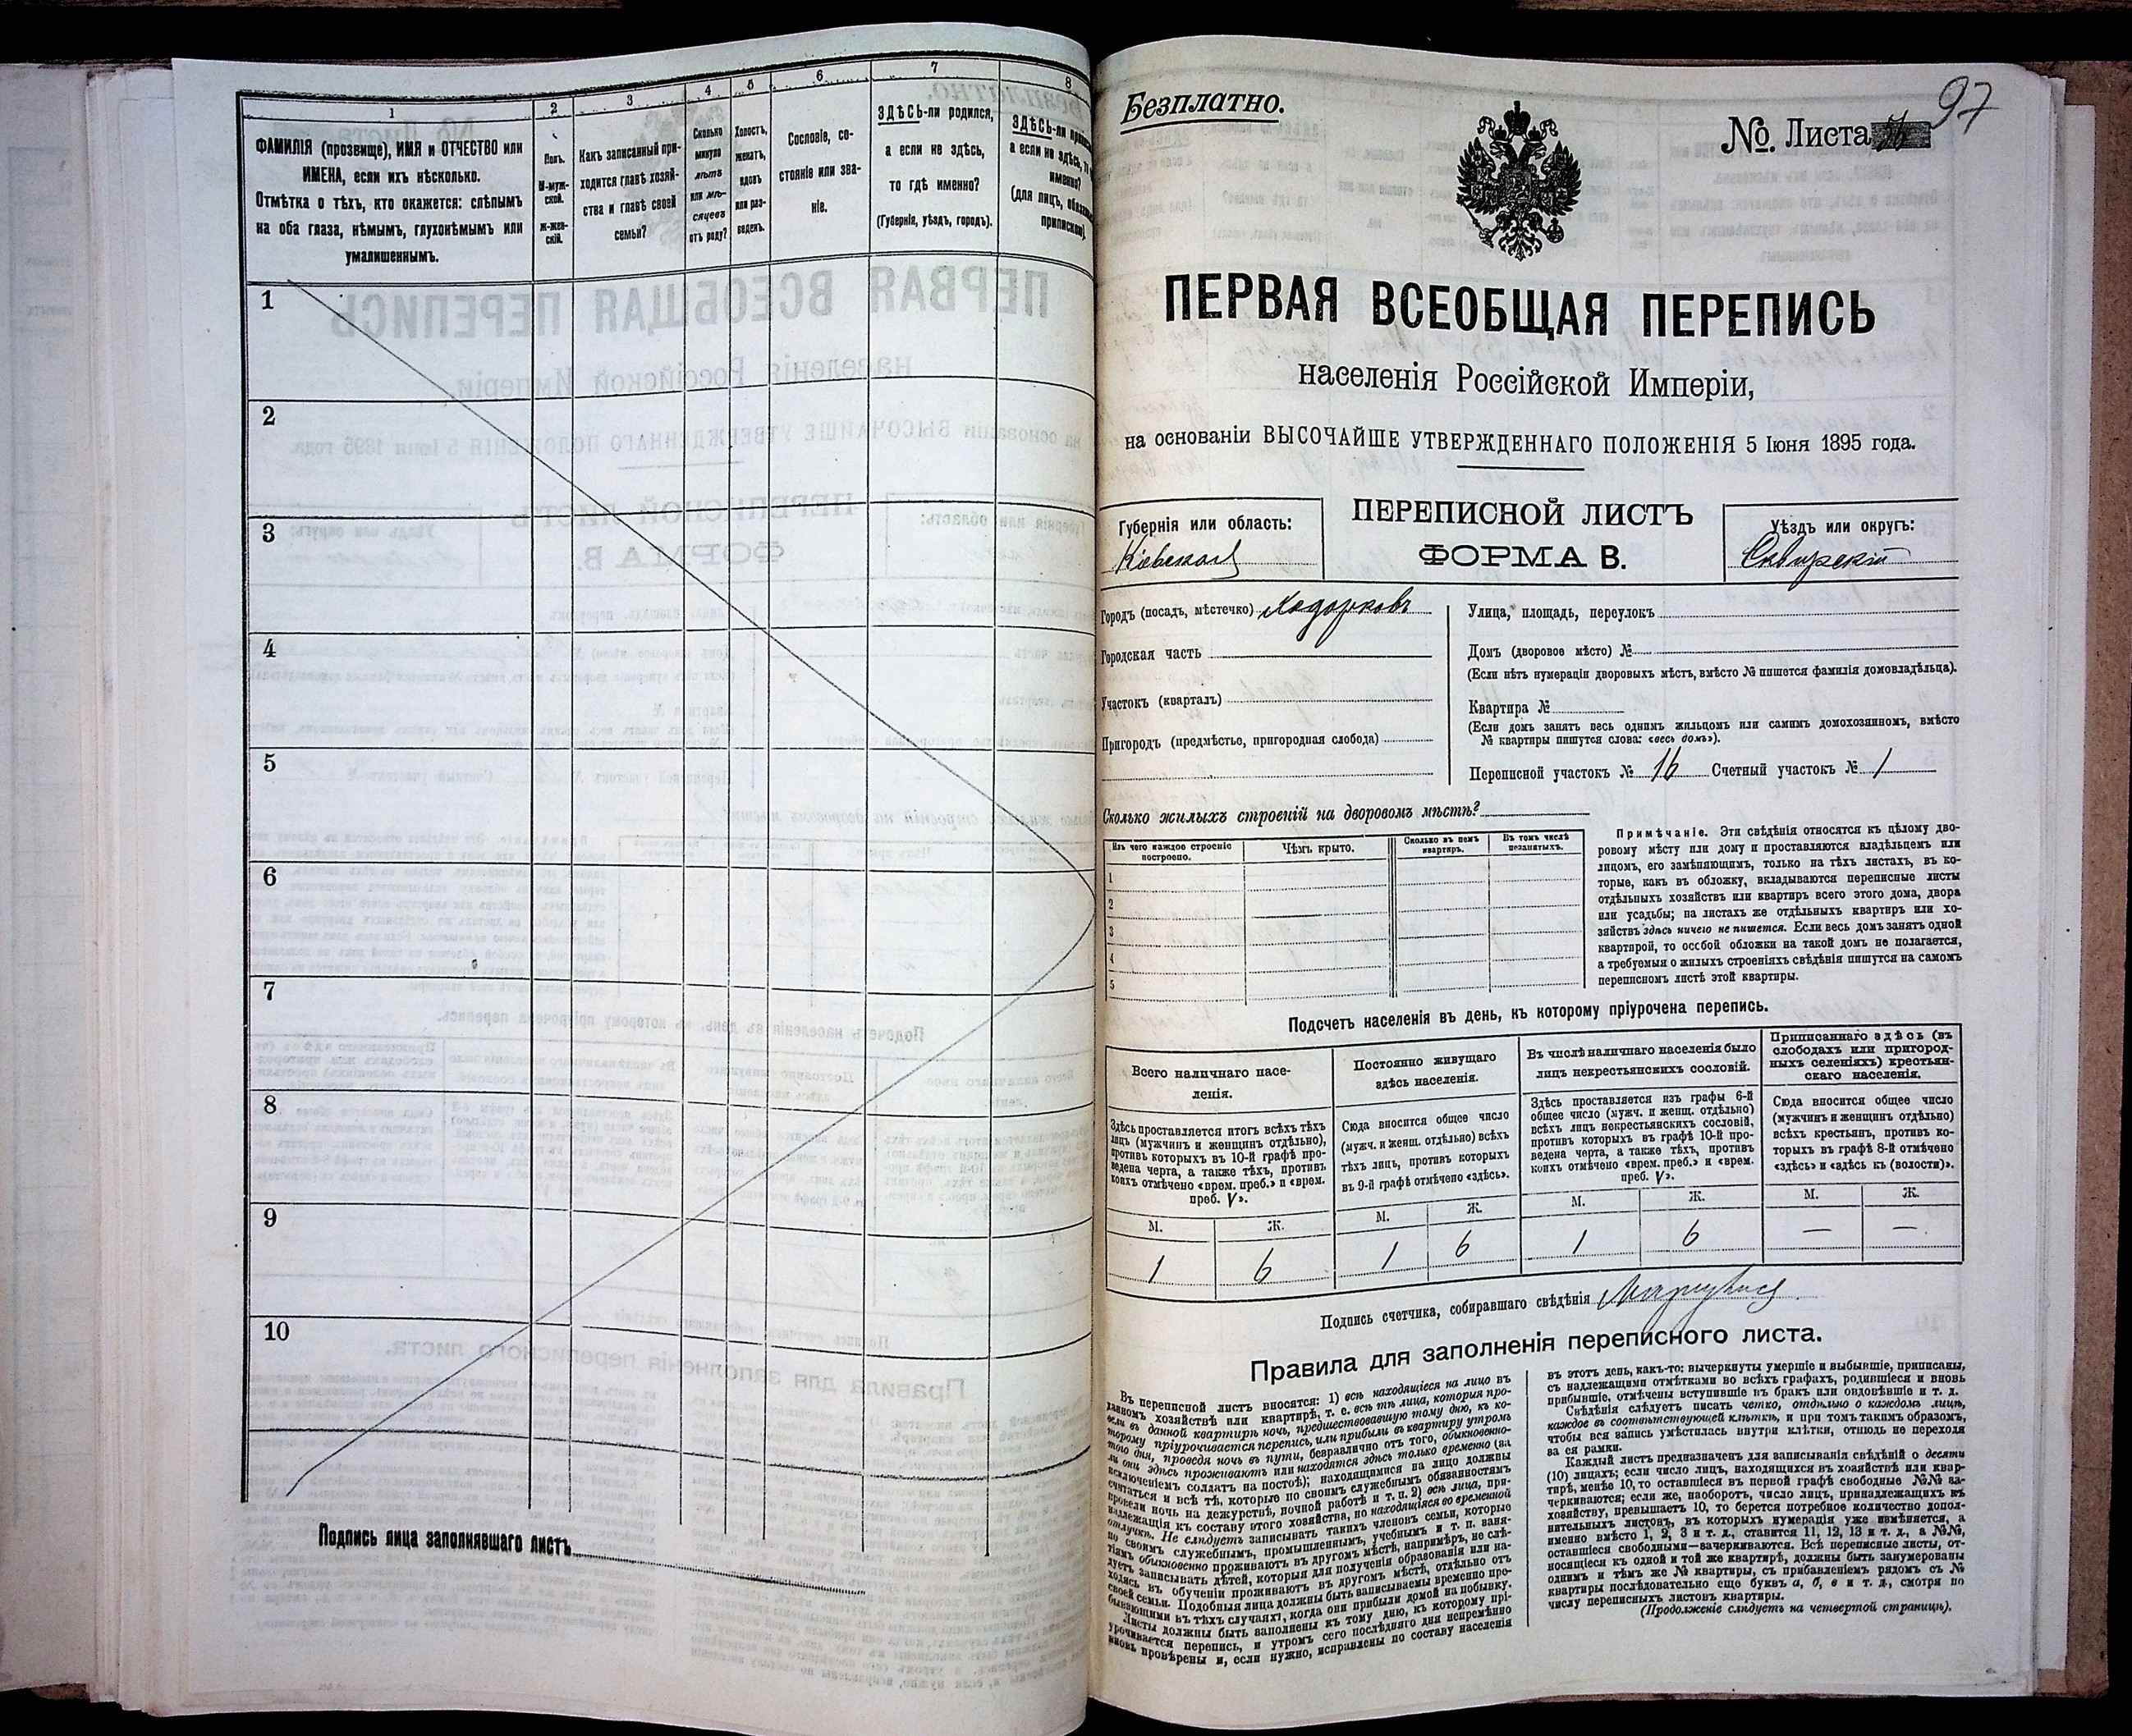 1
2
3
4
5
6
7
8
ФАМИЛІЯ (прозвище), ИМЯ и ОТЧЕСТВО или
ИМЕНА, если ихъ нѣсколько.
Отмѣтка о тѣхъ, кто окажется: слѣпымъ
на оба глаза, нѣмымъ, глухонѣмымъ или
умалишеннымъ.
Полъ.
М-муж-
ской.
Ж-жен-
скій.
Какъ записанный при-
ходится главѣ хозяй-
ства и главѣ своей
семьи?
Сколько
минуло
лѣтъ
или мѣ-
сяцевъ
отъ роду?
Холостъ,
женатъ,
вдовъ
или раз-
веденъ.
Сословіе, со-
стояніе или зва-
ніе.
ЗДѢСЬ-ли родился,
а если не здѣсь,
то гдѣ именно?
(Губернія, уѣздъ, городъ).
ЗДѢСЬ-ли
а если не здѣсь,
именно?
(для лицъ,
1
2
3
4
5
6
7
8
9
10
Подпись лица заполнявшаго листъ
Безплатно.
№. Листа
97
ПЕРВАЯ ВСЕОБЩАЯ ПЕРЕПИСЬ
населенія Россійской Имперіи,
на основаніи ВЫСОЧАЙШЕ УТВЕРЖДЕННАГО ПОЛОЖЕНІЯ 5 Іюня 1895 года.
Губернія или область:
Кіевская
ПЕРЕПИСНОЙ ЛИСТЪ
ФОРМА В.
Уѣздъ или округъ:
Сквирскій
Городъ (посадъ, мѣстечко) Ходорковъ
Городская часть
Участокъ (кварталъ)
Пригородъ (предмѣстье, пригородная слобода)
Улица, площадь, переулокъ
Домъ (дворовое мѣсто) №
(Если нѣтъ нумераціи дворовыхъ мѣстъ, вмѣсто № пишется фамилія домовладѣльца).
Квартира №
(Если домъ занятъ весь однимъ жильцомъ или самимъ домохозяиномъ, вмѣсто
№ квартиры пишутся слова: «весь домъ»).
Переписной участокъ № 16 Счетный участокъ № 1
Сколько жилыхъ строеній на дворовомъ мѣстѣ?
Изъ чего каждое строеніе
построено.
Чѣмъ крыто.
Сколько въ немъ
квартиръ.
Въ томъ числѣ
незанятыхъ.
1
2
3
4
5
Примѣчаніе. Эти свѣдѣнія относятся къ цѣлому дво-
ровому мѣсту или дому и проставляются владѣльцемъ или
лицомъ, его замѣняющимъ, только на тѣхъ листахъ, въ ко-
торые, какъ въ обложку, вкладываются переписные листы
отдѣльныхъ хозяйствъ или квартиръ всего этого дома, двора
или усадьбы; на листахъ же отдѣльныхъ квартиръ или хо-
зяйствъ здѣсь ничего не пишется. Если весь домъ занятъ одной
квартирой, то особой обложки на такой домъ не полагается,
а требуемыя о жилыхъ строеніяхъ свѣдѣнія пишутся на самомъ
переписномъ листѣ этой квартиры.
Подсчетъ населенія въ день, къ которому пріурочена перепись.
Всего наличнаго насе-
ленія.
Здѣсь проставляется итогъ всѣхъ тѣхъ
лицъ (мужчинъ и женщинъ отдѣльно),
противъ которыхъ въ 10-й графѣ про-
ведена черта, а также тѣхъ, противъ
коихъ отмѣчено «врем. преб.» и «врем.
преб. V».
М. Ж.
1 6
Постоянно живущаго
здѣсь населенія.
Сюда вносится общее число
(мужч. и женщ. отдѣльно) всѣхъ
тѣхъ лицъ, противъ которыхъ
въ 9-й графѣ отмѣчено «здѣсь».
М. Ж.
1 6
Въ числѣ наличнаго населенія было
лицъ некрестьянскихъ сословій.
Здѣсь проставляется изъ графы 6-й
общее число (мужч. и женщ. отдѣльно)
всѣхъ лицъ некрестьянскихъ сословій,
противъ которыхъ въ графѣ 10-й про-
ведена черта, а также тѣхъ, противъ
коихъ отмѣчено «врем. преб.» и «врем.
преб. V».
М. Ж.
1 6
Приписаннаго здѣсь (въ
слободахъ или пригород-
ныхъ селеніяхъ) крестьян-
скаго населенія.
Сюда вносится общее число
(мужчинъ и женщинъ отдѣльно)
всѣхъ крестьянъ, противъ ко-
торыхъ въ графѣ 8-й отмѣчено
«здѣсь» и «здѣсь къ (волости)».
М. Ж.
— —
Подпись счетчика, собиравшаго свѣдѣнія
Правила для заполненія переписного листа.
Въ переписной листъ вносятся: 1) всѣ находящіеся на лицо въ
данномъ хозяйствѣ или квартирѣ, т. е. всѣ тѣ лица, которыя про-
вели въ данной квартирѣ ночь, предшествовавшую тому дню, къ ко-
торому пріурочивается перепись, или прибыли въ квартиру утромъ
того дня, проведя ночь въ пути, безразлично отъ того, обыкновенно-
ли они здѣсь проживаютъ или находятся здѣсь только временно (за
исключеніемъ солдатъ на постоѣ); находящимися на лицо должны
считаться и всѣ тѣ, которые по своимъ служебнымъ обязанностямъ
провели ночь на дежурствѣ, ночной работѣ и т. п. 2) всѣ лица, при-
надлежащія къ составу этого хозяйства, но находящіяся во временной
отлучкѣ. Не слѣдуетъ записывать такихъ членовъ семьи, которые
по своимъ служебнымъ, промышленнымъ, учебнымъ и т. п. заня-
тіямъ обыкновенно проживаютъ въ другомъ мѣстѣ, напримѣръ, не слѣ-
дуетъ записывать дѣтей, которыя для полученія образованія или на-
ходясь въ обученіи проживаютъ въ другомъ мѣстѣ, отдѣльно отъ
своей семьи. Подобныя лица должны быть записываемы временно пре-
бывающими въ тѣхъ случаяхъ, когда они прибыли домой на побывку.
Листы должны быть заполнены къ тому дню, къ которому прі-
урочивается перепись, и утромъ сего послѣдняго дня непремѣнно
вновь провѣрены и, если нужно, исправлены по составу населенія
въ этотъ день, какъ-то: вычеркнуты умершіе и выбывшіе, приписаны,
съ надлежащими отмѣтками во всѣхъ графахъ, родившіеся и вновь
прибывшіе, отмѣчены вступившіе въ бракъ или овдовѣвшіе и т. д.
Свѣдѣнія слѣдуетъ писать четко, отдѣльно о каждомъ лицѣ,
каждое въ соотвѣтствующей клѣткѣ, и при томъ такимъ образомъ,
чтобы вся запись умѣстилась внутри клѣтки, отнюдь не переходя
за ея рамки.
Каждый листъ предназначенъ для записыванія свѣдѣній о десяти
(10) лицахъ; если число лицъ, находящихся въ хозяйствѣ или квар-
тирѣ, менѣе 10, то оставшіеся въ первой графѣ свободные №№ за-
черкиваются; если же, наоборотъ, число лицъ, принадлежащихъ къ
хозяйству, превышаетъ 10, то берется потребное количество допол-
нительныхъ листовъ, въ которыхъ нумерація уже измѣняется, а
именно вмѣсто 1, 2, 3 и т. д., ставится 11, 12, 13 и т. д., а №№,
оставшіеся свободными—зачеркиваются. Всѣ переписные листы, от-
носящіеся къ одной и той же квартирѣ, должны быть занумерованы
однимъ и тѣмъ же № квартиры, съ прибавленіемъ рядомъ съ №
квартиры послѣдовательно еще буквъ а, б, в и т. д., смотря по
числу переписныхъ листовъ квартиры.
(Продолженіе слѣдуетъ на четвертой страницѣ).